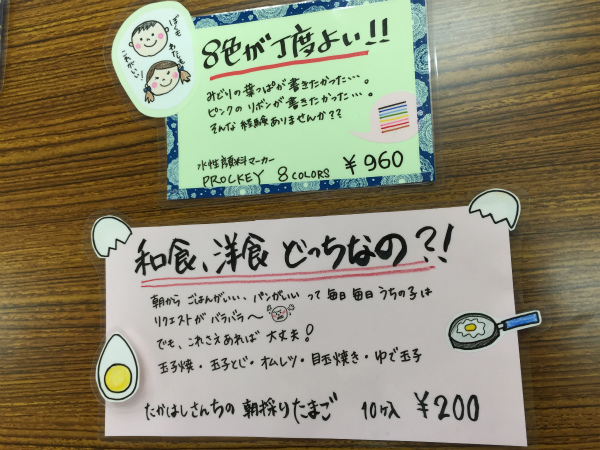 ぼくも
わたしも
うれしい!
8色が丁度よい!!
みどりの葉っぱが書きたかった…。
ピンクのリボンが書きたかった…。
そんな経験ありませんか??
水性顔料マーカー
PROCKEY 8 COLORS ¥960
和食、洋食 どっちなの?!
朝から ごはんがいい、パンがいい って 毎日 毎日 うちの子は
リクエストが バラバラ〜
でも、これさえあれば 大丈夫!
玉子焼・玉子とじ・オムレツ・目玉焼き・ゆで玉子
たかはしさんちの 朝採りたまご 10ヶ入 ¥200